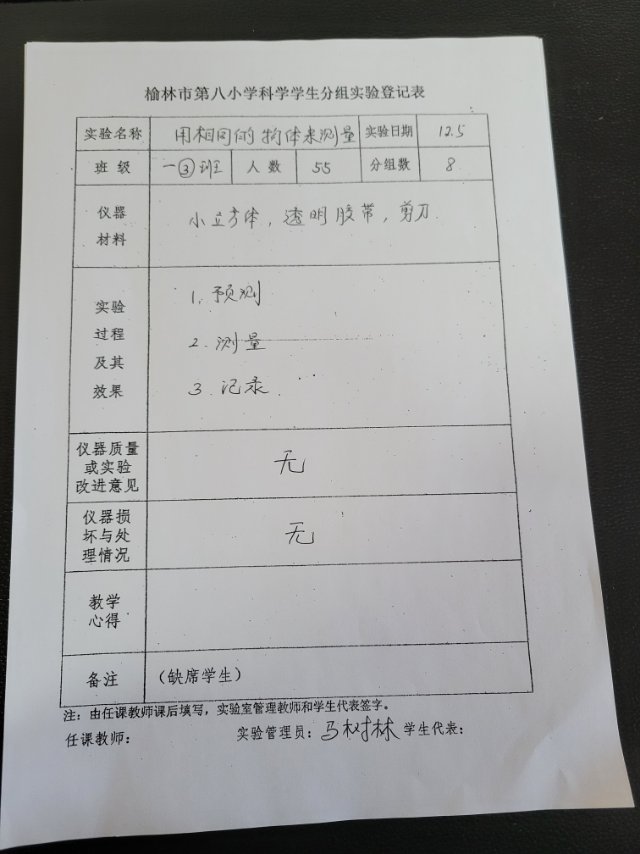 榆林市第八小学科学学生分组实验登记表
实验名称 用相同的物体来测量 实验日期 12.5
班 级 一③班 人 数 55 分组数 8
仪器
材料
小立方体，透明胶带，剪刀
实验
过程
及其
效果
1. 预测
2. 测量
3. 记录
仪器质量
或实验
改进意见
无
仪器损
坏与处
理情况
无
教学
心得
备注 （缺席学生）
注：由任课教师课后填写，实验室管理教师和学生代表签字。
任课教师： 实验管理员：马树林 学生代表：